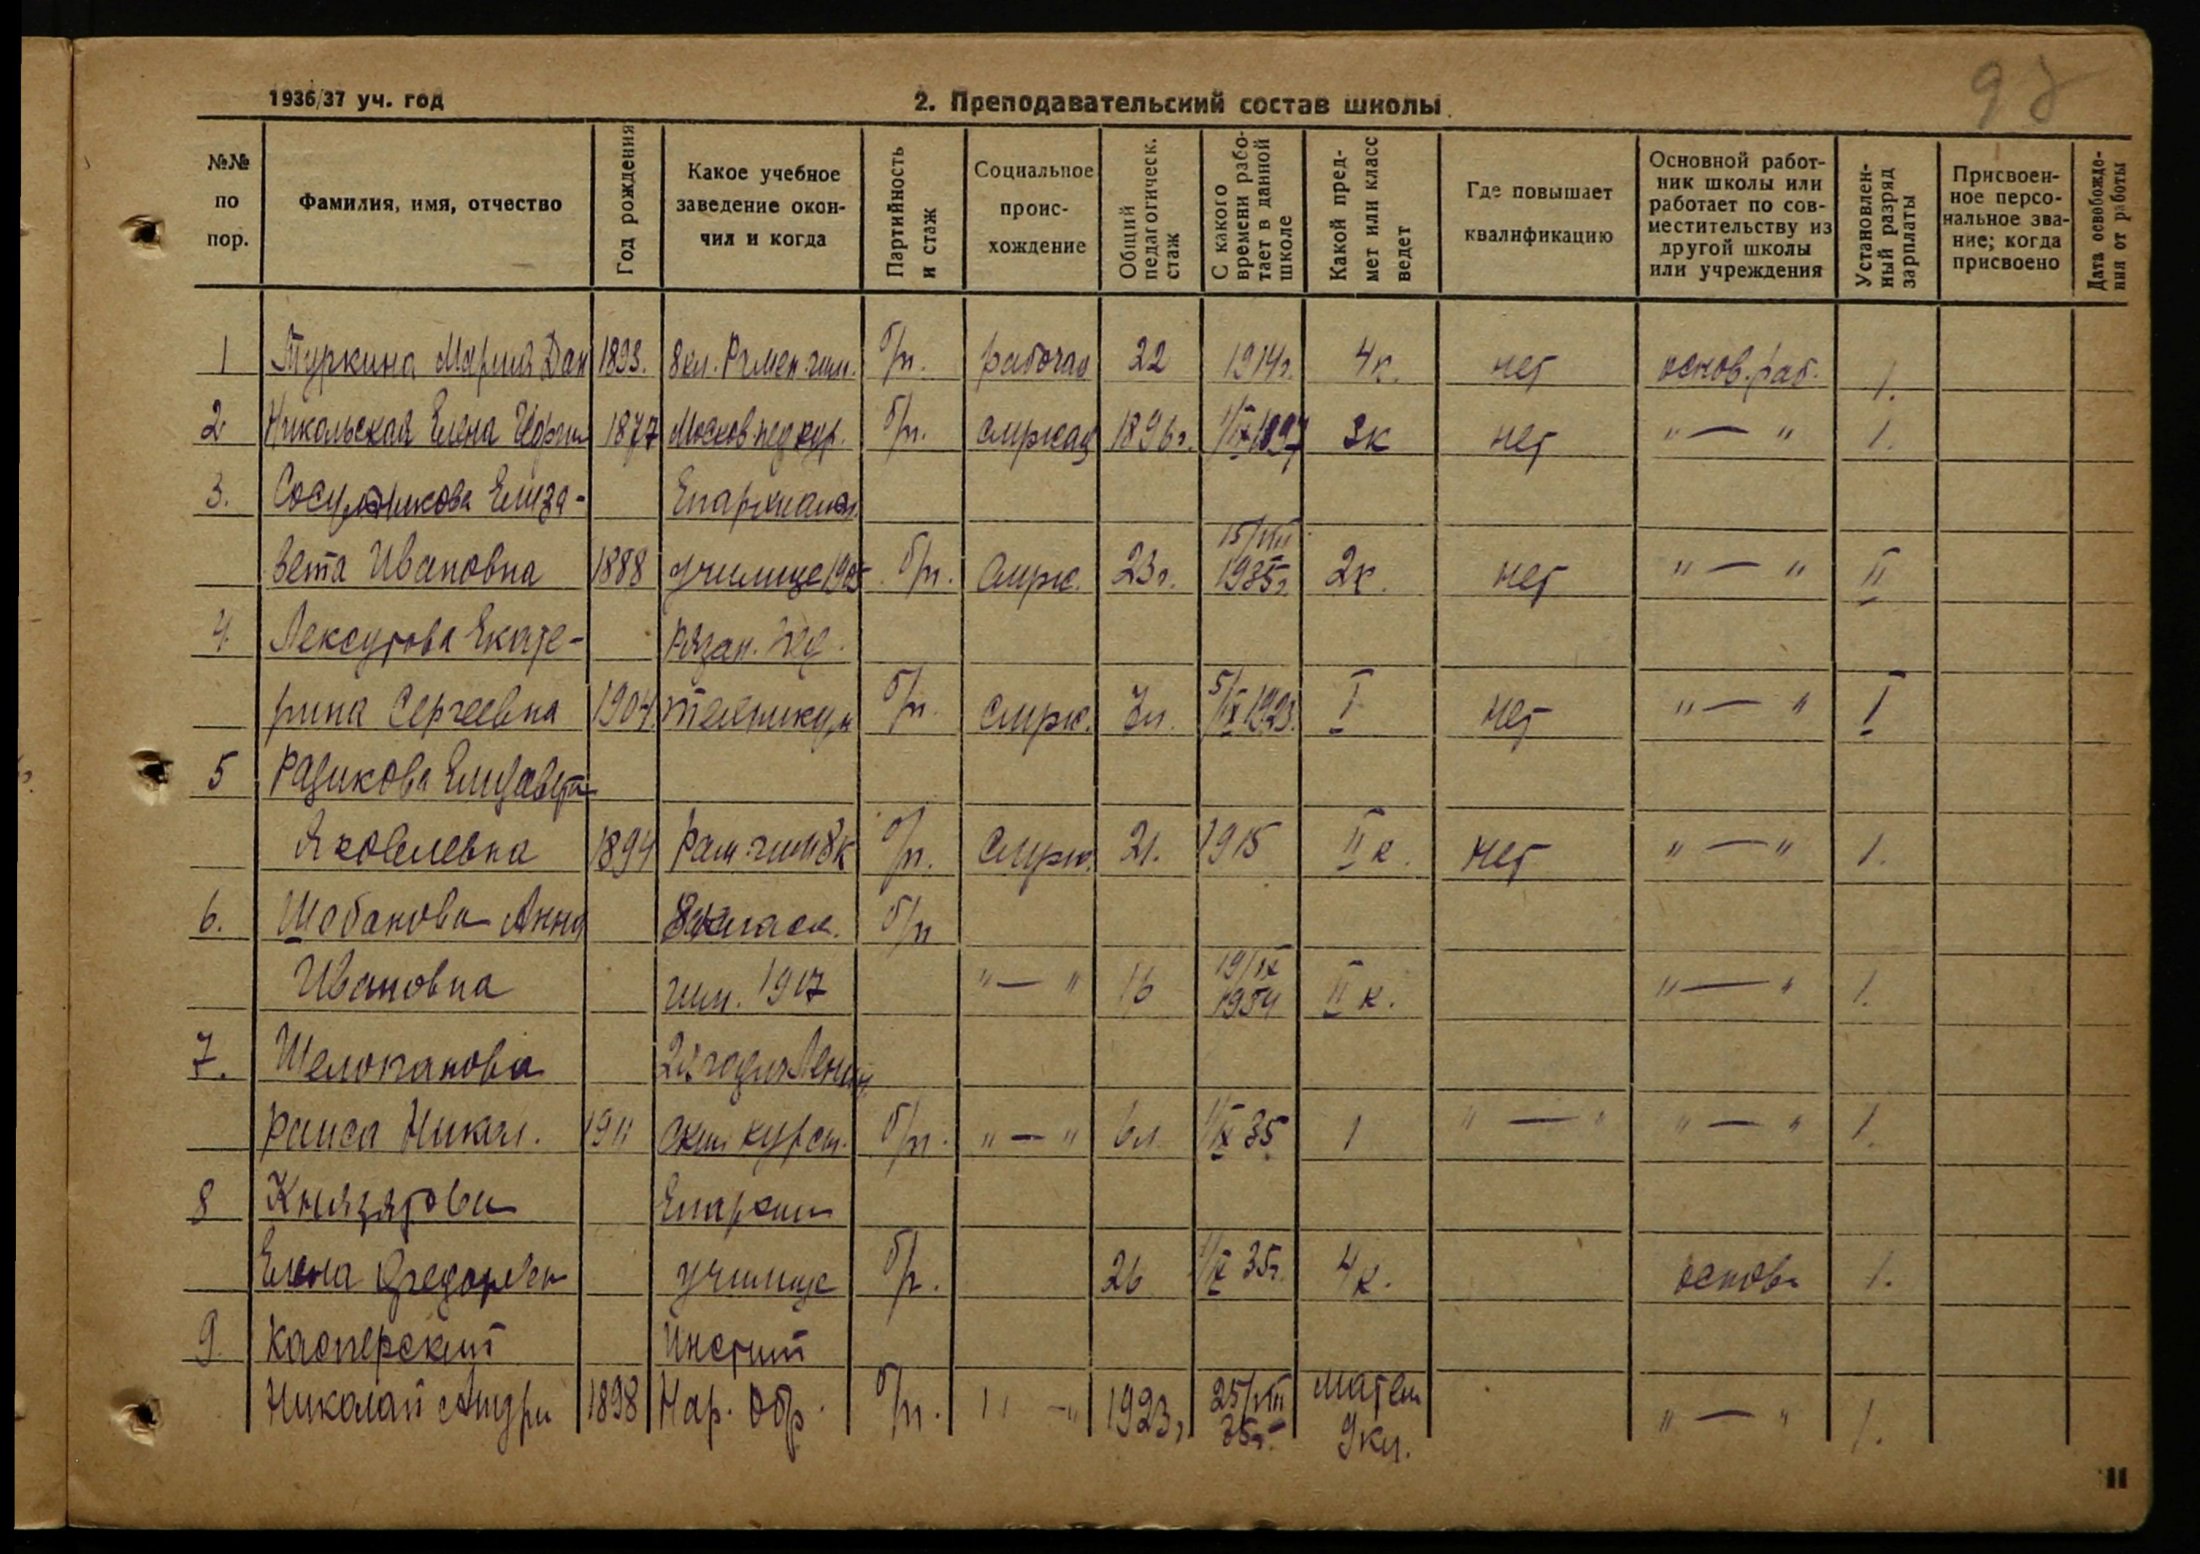 98
1936/37 уч. год
2. Преподавательский состав школы
№№ по пор.
Фамилия, имя, отчество
Год рождения
Какое учебное заведение окончил и когда
Партийность и стаж
Социальное происхождение
Общий педагогическ. стаж
С какого времени работает в данной школе
Какой предмет или класс ведет
Где повышает квалификацию
Основной работник школы или работает по совместительству из другой школы или учреждения
Установленный разряд зарплаты
Присвоенное персональное звание; когда присвоено
Дата освобождения от работы
1 Туркина Мария Дан 1893. 8 кл. гим. б/п. рабочая 22 1914г. 4к. нет основ. раб. 1.
2 Никольская Елена 1877 Москов. пед кур. б/п. 1896г. 1/IX 1897 3к нет "—" 1.
3. Елиза-
вета Ивановна 1888 Епархиал. училище 1905 б/п. служ. 23г. 15/VIII 1935г. 2к. нет "—" II
4. Лексутова Екате-
рина Сергеевна 1904 Рязан. пед. техникум б/п. служ. 5/IX 1923. I нет "—" I
5 Рацикова Елизавета
Яковлевна 1894 гим 8к б/п. служ. 21. 1915 II к. нет "—" 1.
6. Шобанова Анна 8 класс. б/п
Ивановна гим. 1917 "—" 16 19/IX 1934 II к. "—" 1.
7. Шелопанова
Раиса Никол. 1911 курсы. б/п. "—" 6л. 1/IX 35 1 "—" "—" 1.
8 Князятова Епархи
Елена Федоровн училище б/п. 26 1/IX 35г. 4к. основ. 1.
9. Касперский Инстит
Николай Андри 1898 Нар. Обр. б/п. "—" 1923г. 25/VIII 35г. матем 9кл. "—" 1.
11